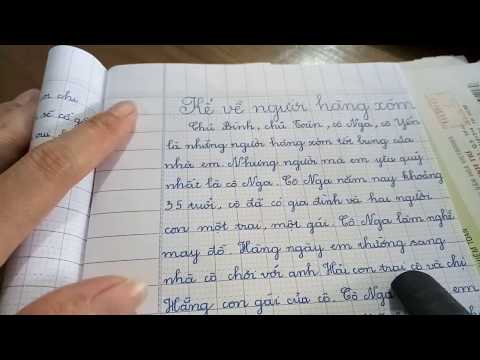 Kể về người hàng xóm
Chú Bính, chú Toàn, cô Nga, cô Yến
là những người hàng xóm tốt bụng của
nhà em. Nhưng người mà em yêu quý
nhất là cô Nga. Cô Nga năm nay khoảng
35 tuổi, cô đã có gia đình và hai người
con một trai, một gái. Cô Nga làm nghề
may đồ. Hàng ngày em thường sang
nhà cô chơi với anh Hải con trai cô và chị
Hằng con gái của cô. Cô Nga em